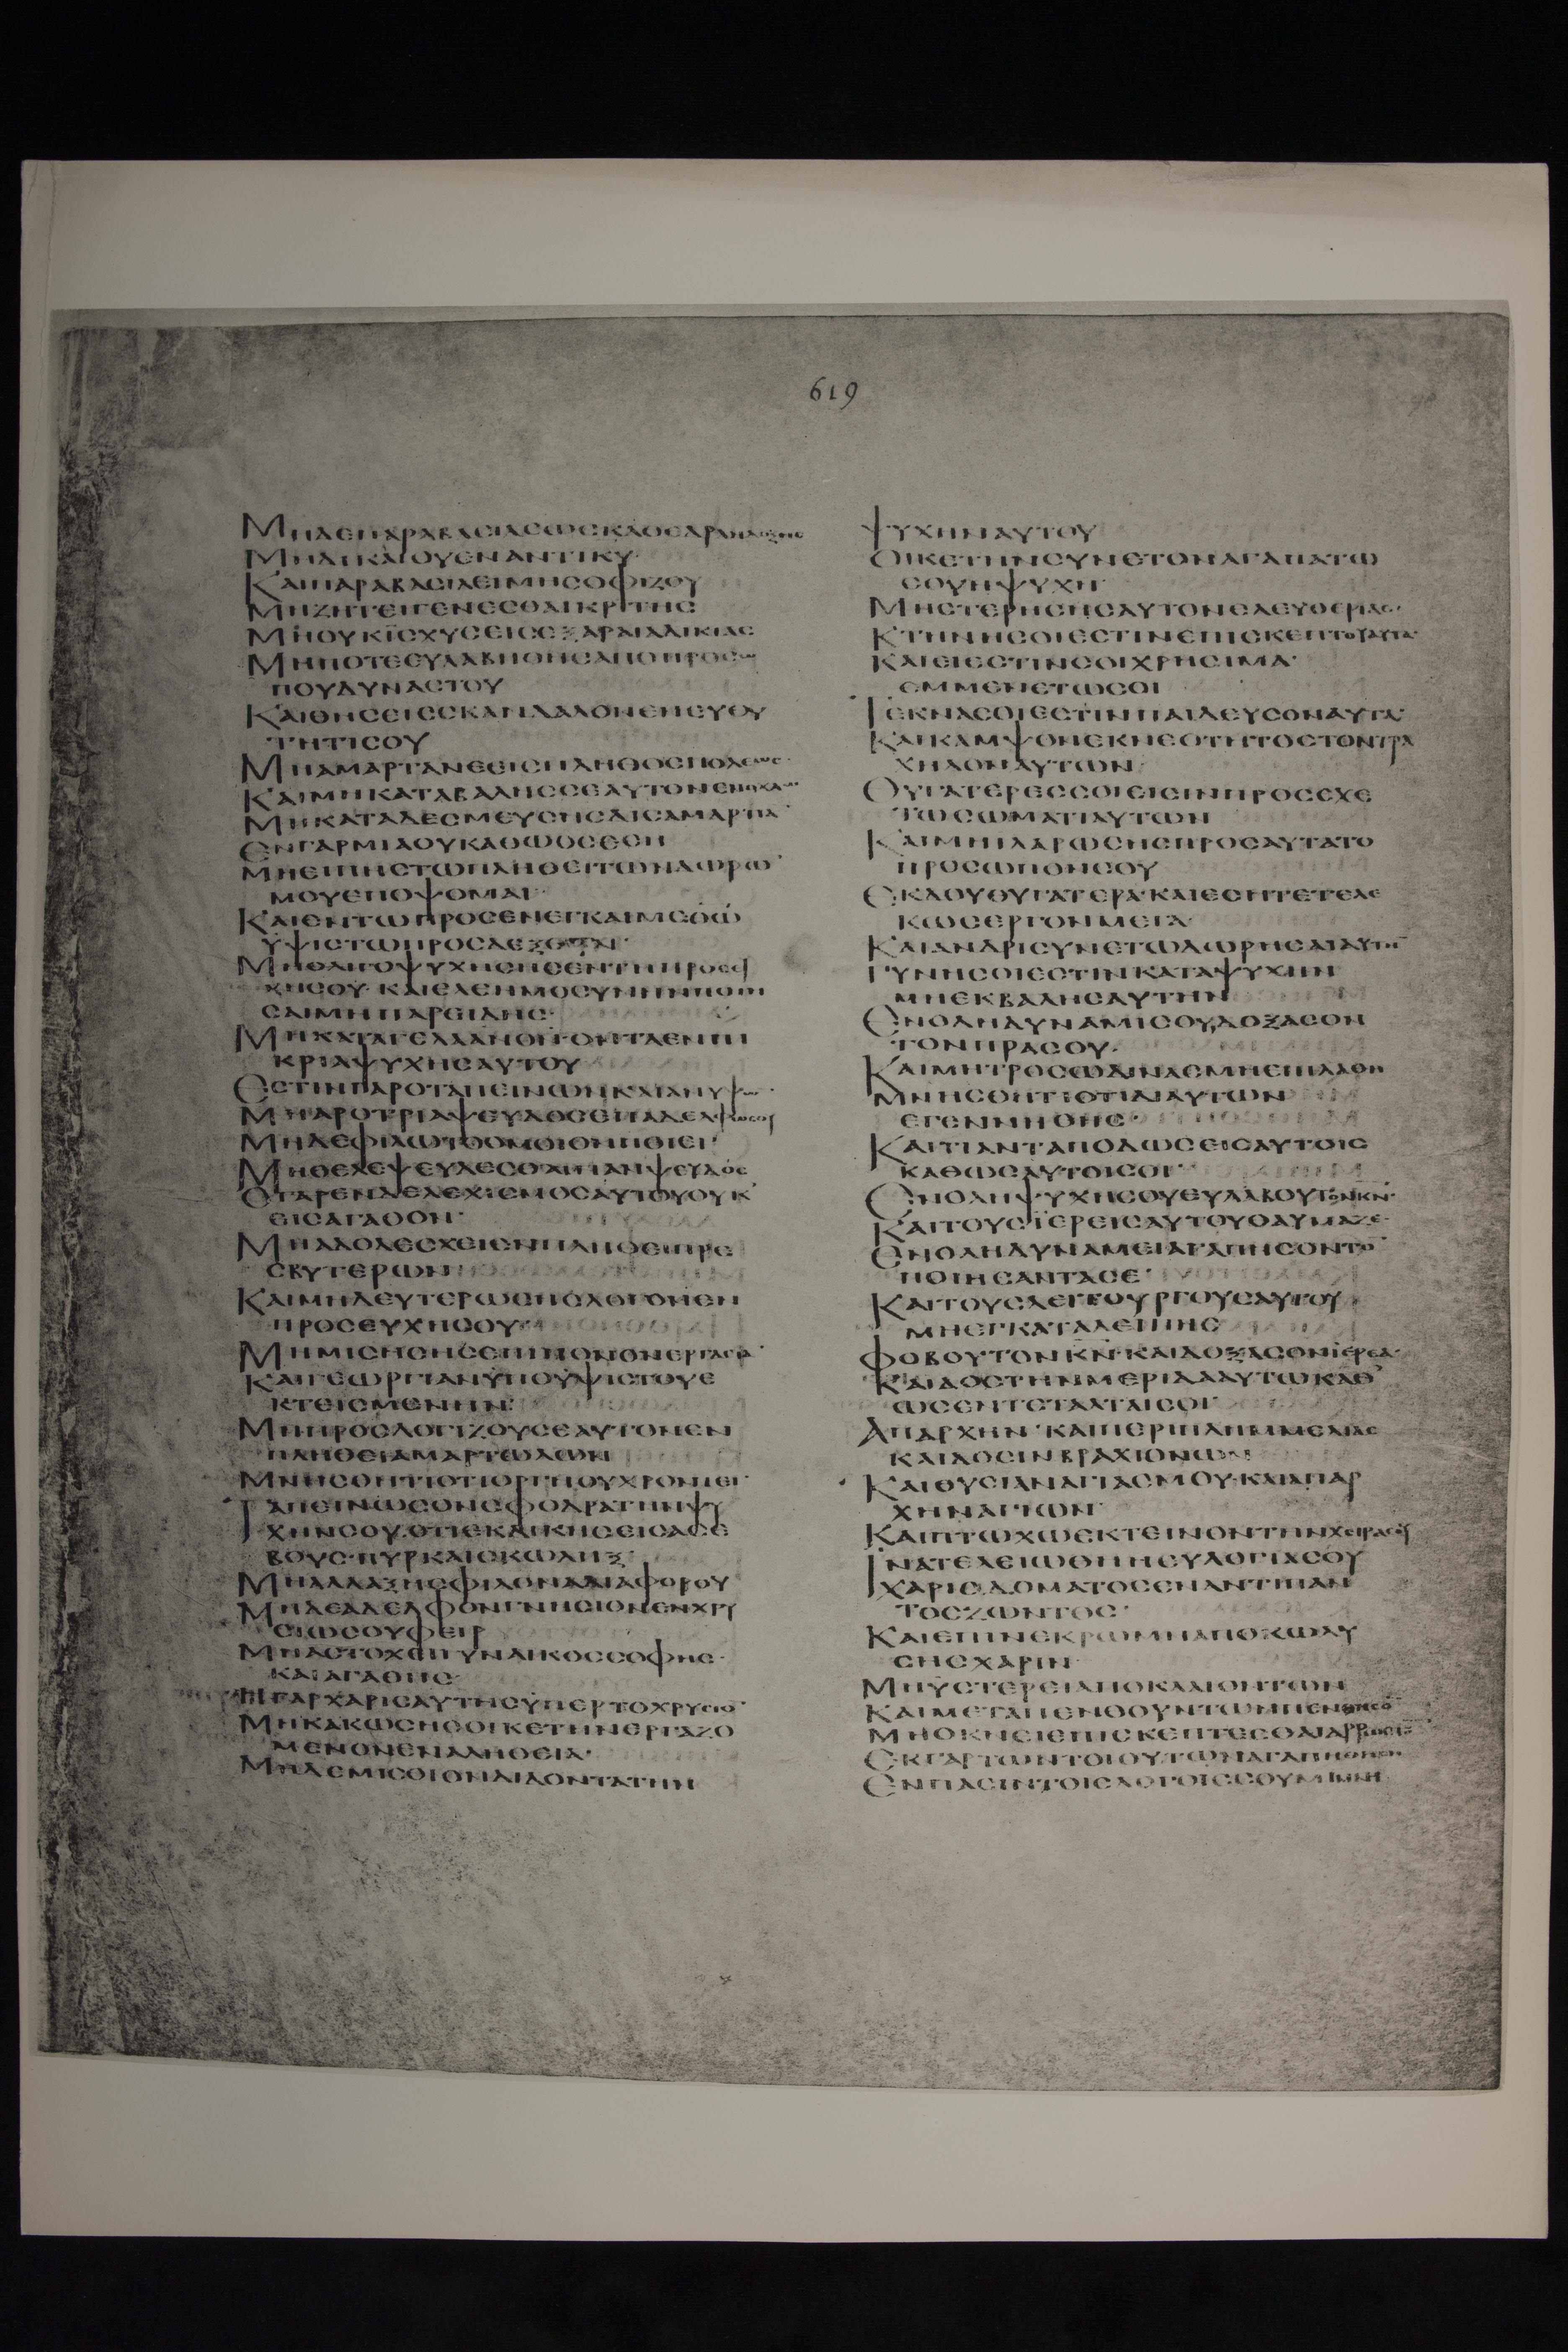 619
ΜΗΔΕΠΑΡΑΒΑCΙΛΕωCΚΑΘΕΔΡΑΝΔΟΞΗC
ΜΗΔΙΚΑΙΟΥΕΝΑΝΤΙΚΥ·
ΚΑΙΠΑΡΑΒΑCΙΛΕΙΜΗCΟΦΙΖΟΥ
ΜΗΖΗΤΕΙΓΕΝΕCΘΑΙΚΡΙΤΗC
ΜΗΟΥΚΪCΧΥCΕΙCΕΞΑΡΑΙΑΔΙΚΙΑC
ΜΗΠΟΤΕΕΥΛΑΒΗΘΗCΑΠΟΠΡΟCω
ΠΟΥΔΥΝΑCΤΟΥ
ΚΑΙΘΗCΕΙCCΚΑΝΔΑΛΟΝΕΝΕΥΘΥ
ΤΗΤΙCΟΥ
ΜΗΑΜΑΡΤΑΝΕΕΙCΠΛΗΘΟCΠΟΛΕωC·
ΚΑΙΜΗΚΑΤΑΒΑΛΗCCΕΑΥΤΟΝΕΝΟΧΛω
ΜΗΚΑΤΑΔΕCΜΕΥCΗCΔΙCΑΜΑΡΤΙΑ
ΕΝΓΑΡΜΙΑΟΥΚΑΘωΟCΕCΗ
ΜΗΕΙΠΗCΤωΠΛΗΘΕΙΤωΝΔωΡω
ΜΟΥΕΠΟΨΟΜΑΙ·
ΚΑΙΕΝΤωΠΡΟCΕΝΕΓΚΑΙΜΕΘω
ΥΨΙCΤωΠΡΟCΔΕΞΕΤΑΙ·
ΜΗΟΛΙΓΟΨΥΧΗCΗCΕΝΤΗΠΡΟCΕΥ
ΧΗCΟΥ·ΚΑΙΕΛΕΗΜΟCΥΝΗΝΠΟΙΗ
CΑΙΜΗΠΑΡΕΙΔΗC·
ΜΗΚΑΤΑΓΕΛΑΑΝΘΡΟΝΤΑΕΝΠΙ
ΚΡΙΑΨΥΧΗCΑΥΤΟΥ
ΕCΤΙΝΓΑΡΟΤΑΠΕΙΝωΝΚΑΙΑΝΥΨω
ΜΗΑΡΟΤΡΙΑΨΕΥΔΟCΕΠΑΔΕΛΦωCΟΥ
ΜΗΔΕΦΙΛωΤΟΟΜΟΙΟΝΠΟΙΕΙ·
ΜΗΘΕΛΕΨΕΥΔΕCΘΑΙΠΑΝΨΕΥΔΟC
ΟΓΑΡΕΝΔΕΛΕΧΙCΜΟCΑΥΤΟΥΟΥΚ
ΕΙCΑΓΑΘΟΝ·
ΜΗΑΔΟΛΕCΧΕΙΕΝΠΛΗΘΕΙΠΡΕ
CΒΥΤΕΡωΝ
ΚΑΙΜΗΔΕΥΤΕΡωCΗCΛΟΓΟΝΕΝ
ΠΡΟCΕΥΧΗCΟΥ·
ΜΗΜΙCΗCΗCΕΠΙΠΟΝΟΝΕΡΓΑCΙΑ
ΚΑΙΓΕωΡΓΙΑΝΥΠΟΥΨΙCΤΟΥΕ
ΚΤΕΙCΜΕΝΗΝ·
ΜΗΠΡΟCΛΟΓΙΖΟΥCΕΑΥΤΟΝΕΝ
ΠΛΗΘΕΙΑΜΑΡΤωΛωΝ
ΜΝΗCΘΗΤΙΟΤΙΟΡΓΗΟΥΧΡΟΝΙΕΙ·
ΤΑΠΕΙΝωCΟΝCΦΟΔΡΑΤΗΝΨΥ
ΧΗΝCΟΥ·ΟΤΙΕΚΔΙΚΗCΕΙCΑCΕ
ΒΟΥC·ΠΥΡΚΑΙCΚωΛΗΞ·
ΜΗΑΛΛΑΞΗCΦΙΛΟΝΑΔΙΑΦΟΡΟΥ
ΜΗΔΕΑΔΕΛΦΟΝΓΝΗCΙΟΝΕΝΧΡΥ
CΙωCΟΥΦΕΙΡ
ΜΗΑCΤΟΧΕΙΓΥΝΑΙΚΟCCΟΦΗC·
ΚΑΙΑΓΑΘΗC·
ΗΓΑΡΧΑΡΙCΑΥΤΗCΫΠΕΡΤΟΧΡΥCΙΟ
ΜΗΚΑΚωCΗCΟΙΚΕΤΗΝΕΡΓΑΖΟ
ΜΕΝΟΝΕΝΑΛΗΘΕΙΑ·
ΜΗΔΕΜΙCΘΙΟΝΔΙΔΟΝΤΑΤΗΝ
ΨΥΧΗΝΑΥΤΟΥ
ΟΙΚΕΤΗΝCΥΝΕΤΟΝΑΓΑΠΑΤω
CΟΥΗΨΥΧΗ·
ΜΗCΤΕΡΗCΗCΑΥΤΟΝΕΛΕΥΘΕΡΙΑC·
ΚΤΗΝΗCΟΙΕCΤΙΝΕΠΙCΚΕΠΤΟΥΑΥΤΑ·
ΚΑΙΕΙΕCΤΙΝCΟΙΧΡΗCΙΜΑ·
ΕΜΜΕΝΕΤωCΟΙ
ΤΕΚΝΑCΟΙΕCΤΙΝΠΑΙΔΕΥCΟΝΑΥΤΑ·
ΚΑΙΚΑΜΨΟΝΕΚΝΕΟΤΗΤΟCΤΟΝΤΡΑ
ΧΗΛΟΝΑΥΤωΝ·
ΘΥΓΑΤΕΡΕCCΟΙΕΙCΙΝΠΡΟCΕΧΕ
ΤωCωΜΑΤΙΑΥΤωΝ
ΚΑΙΜΗΙΛΑΡωCΗCΠΡΟCΑΥΤΑΤΟ
ΠΡΟCωΠΟΝCΟΥ
ΕΚΔΟΥΘΥΓΑΤΕΡΑ·ΚΑΙΕCΗΤΕΤΕΛΕ
ΚωCΕΡΓΟΝΜΕΓΑ·
ΚΑΙΑΝΔΡΙCΥΝΕΤωΔωΡΗCΑΙΑΥΤΗ
ΓΥΝΗCΟΙΕCΤΙΝΚΑΤΑΨΥΧΗΝ
ΜΗΕΚΒΑΛΗCΑΥΤΗΝ
ΕΝΟΛΗΔΥΝΑΜΙCΟΥΔΟΞΑCΟΝ
ΤΟΝΠΡΑCΟΥ·
ΚΑΙΜΗΤΡΟCωΔΙΝΑCΜΗΕΠΙΛΑΘΗ
ΜΝΗCΘΗΤΙΟΤΙΔΙΑΥΤωΝ
ΕΓΕΝΝΗΘΗC·
ΚΑΙΤΙΑΝΤΑΠΟΔωCΕΙCΑΥΤΟΙC
ΚΑΘωCΑΥΤΟΙCΟΙ
ΕΝΟΛΗΨΥΧΗCΟΥΕΥΛΑΒΟΥΤΟΝΚΝ·
ΚΑΙΤΟΥCΪΕΡΕΙCΑΥΤΟΥΘΑΥΜΑΖΕ·
ΕΝΟΛΗΔΥΝΑΜΕΙΑΓΑΠΗCΟΝΤΟ
ΠΟΙΗCΑΝΤΑCΕ·
ΚΑΙΤΟΥCΛΕΙΤΟΥΡΓΟΥCΑΥΤΟΥ
ΜΗΕΓΚΑΤΑΛΕΙΠΗC
ΦΟΒΟΥΤΟΝΚΝ·ΚΑΙΔΟΞΑCΟΝΪΕΡΕΑ·
ΚΑΙΔΟCΤΗΝΜΕΡΙΔΑΑΥΤωΚΑΘ
ωCΕΝΤΕΤΑΛΤΑΙCΟΙ
ΑΠΑΡΧΗΝ·ΚΑΙΠΕΡΙΠΛΗΜΜΕΛΙΑC
ΚΑΙΔΟCΙΝΒΡΑΧΙΟΝωΝ
ΚΑΙΘΥCΙΑΝΑΓΙΑCΜΟΥ·ΚΑΙΑΠΑΡ
ΧΗΝΑΓΙωΝ·
ΚΑΙΠΤωΧωΕΚΤΕΙΝΟΝΤΗΝΧΕΙΡΑCΟΥ
ΙΝΑΤΕΛΕΙωΘΗΗΕΥΛΟΓΙΑCΟΥ
ΧΑΡΙCΔΟΜΑΤΟCΕΝΑΝΤΙΠΑΝ
ΤΟCΖωΝΤΟC·
ΚΑΙΕΠΙΝΕΚΡωΜΗΑΠΟΚωΛΥ
CΗCΧΑΡΙΝ·
ΜΗΥCΤΕΡΕΙΑΠΟΚΛΑΙΟΝΤωΝ
ΚΑΙΜΕΤΑΠΕΝΘΟΥΝΤωΝΠΕΝΘΗCΟ
ΜΗΟΚΝΕΙΕΠΙCΚΕΠΤΕCΘΑΙΑΡΡωCΤΟ
ΕΚΓΑΡΤωΝΤΟΙΟΥΤωΝΑΓΑΠΗΘΗCΗ
ΕΝΠΑCΙΝΤΟΙCΛΟΓΟΙCCΟΥΜΙΜΝΗ